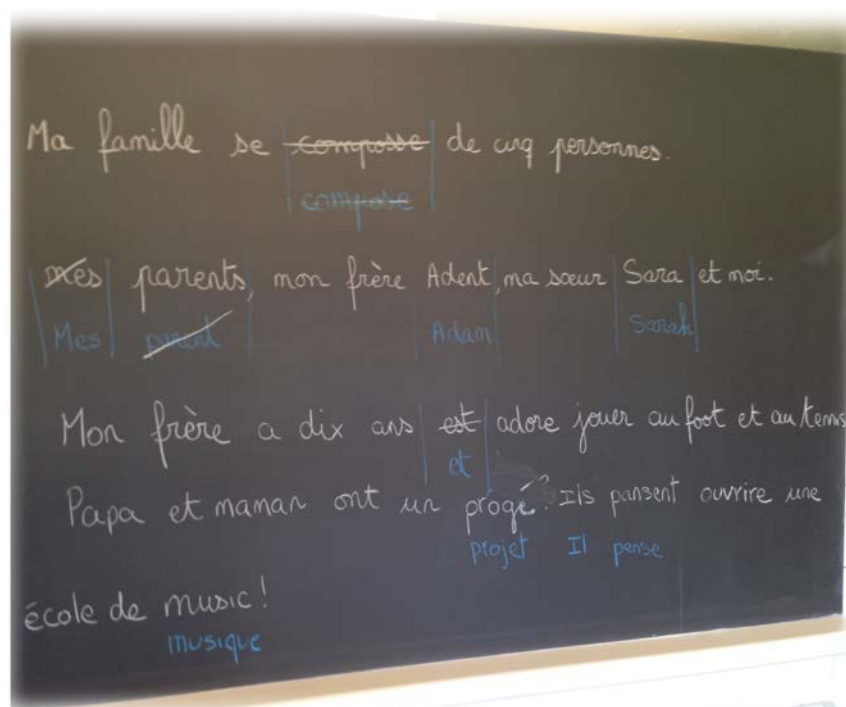 Ma famille se composse de cinq personnes.
compose
mes parents, mon frère Adent, ma sœur Sara et moi.
Mes parent Adam Sarah
Mon frère a dix ans est adore jouer au foot et au tennis
et
Papa et maman ont un progé? Ils pansent ouvrire une
projet Il pense
école de music!
musique